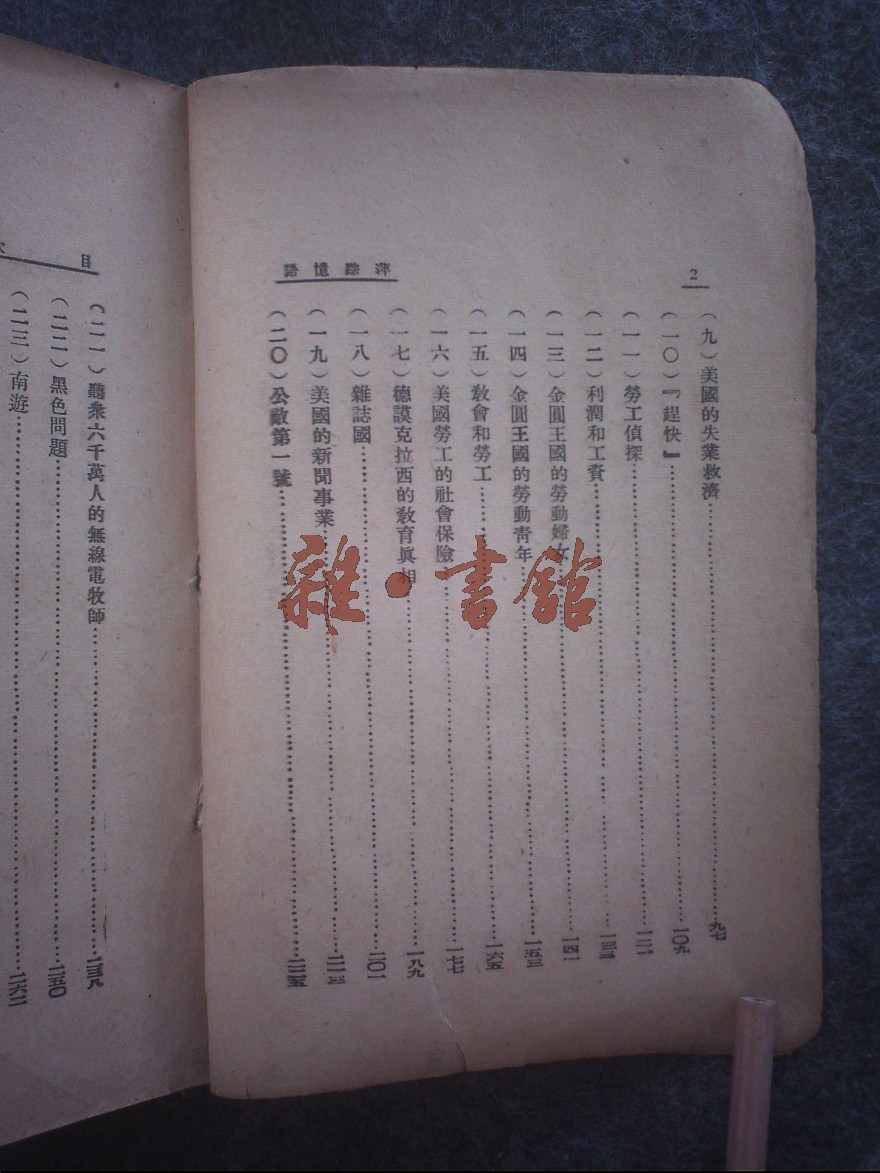 2
萍踪憶語
(九)美國的失業救濟……九七
(一〇)『趕快』……一〇九
(一一)勞工偵探……一二一
(一二)利潤和工資……一三三
(一三)金圓王國的勞動婦女……一四一
(一四)金圓王國的勞動青年……一五三
(一五)敎會和勞工……一六五
(一六)美國勞工的社會保險……一七七
(一七)德謨克拉西的敎育眞相……一八九
(一八)雜誌國……二〇一
(一九)美國的新聞事業……二一三
(二〇)公敵第一號……二二五
目
(二一)聽衆六千萬人的無線電牧師……二三八
(二二)黑色問題……二五〇
(二三)南遊……二六二
雜·書館